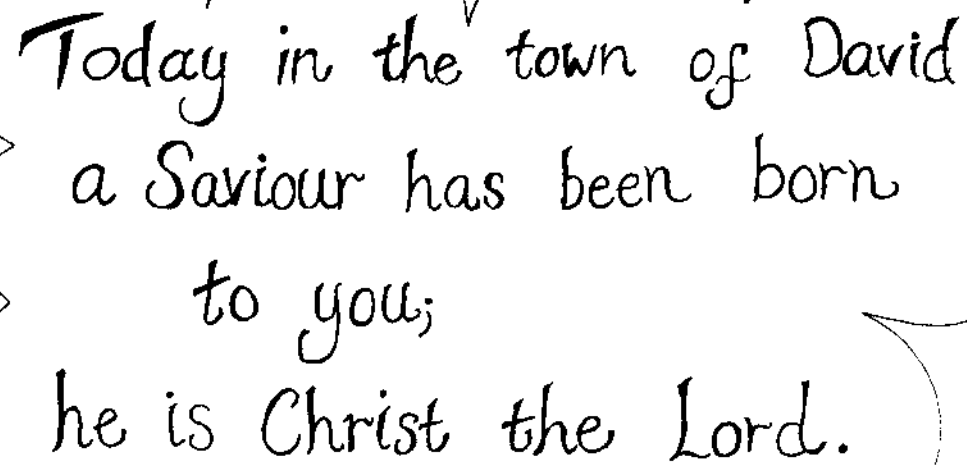 Today in the town of David
a Saviour has been born
to you;
he is Christ the Lord.